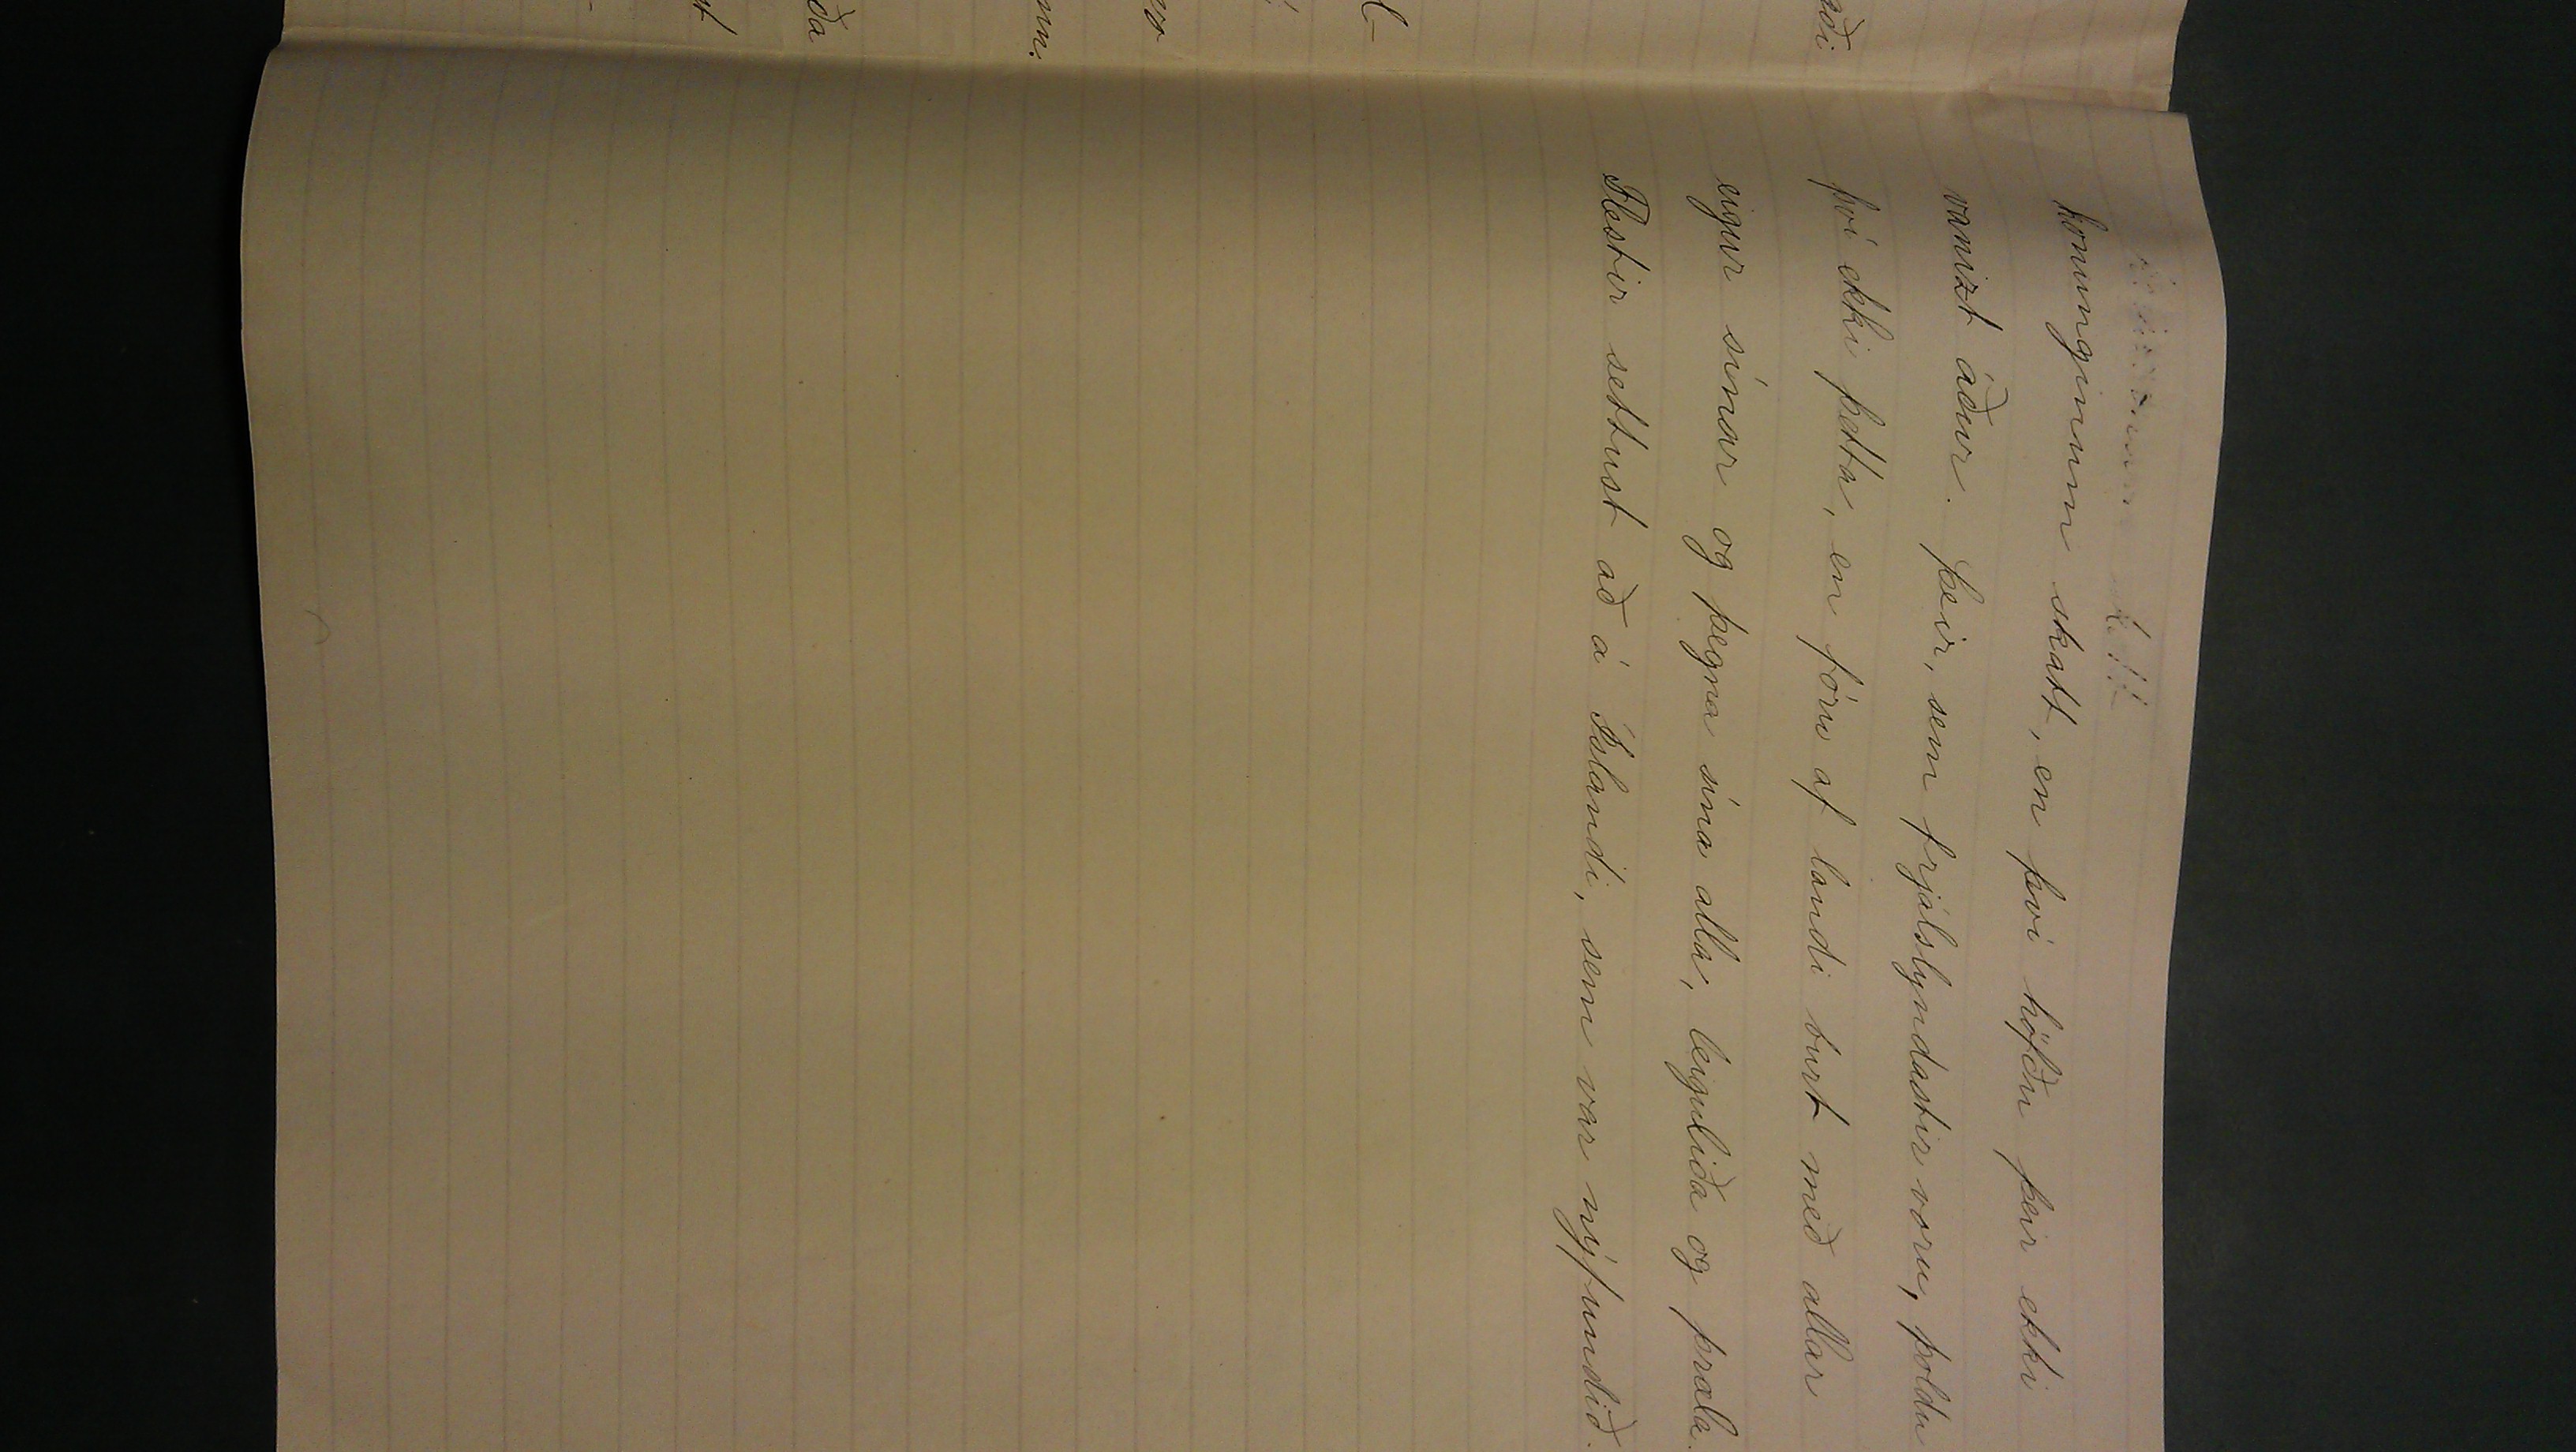 konunginum skatt, en því höfðu þeir ekki
vanizt áður. Þeir, sem frjálslyndastir voru, þoldu
því ekki þetta, en fóru af landi burt með allar
eigur sínar og þegna sína alla, leiguliða og þræla.
Flestir settust að á Íslandi, sem var nýfundið.